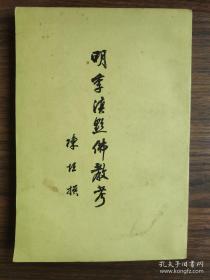 明季滇黔佛教考
陳垣撰
孔夫子旧书网